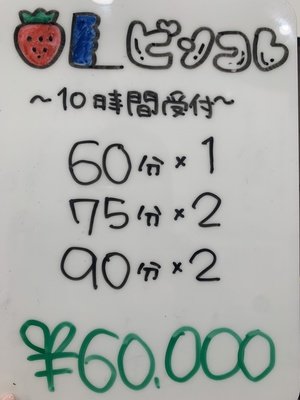 OL ビジコレ
~10時間受付~
60分×1
75分×2
90分×2
¥60.000